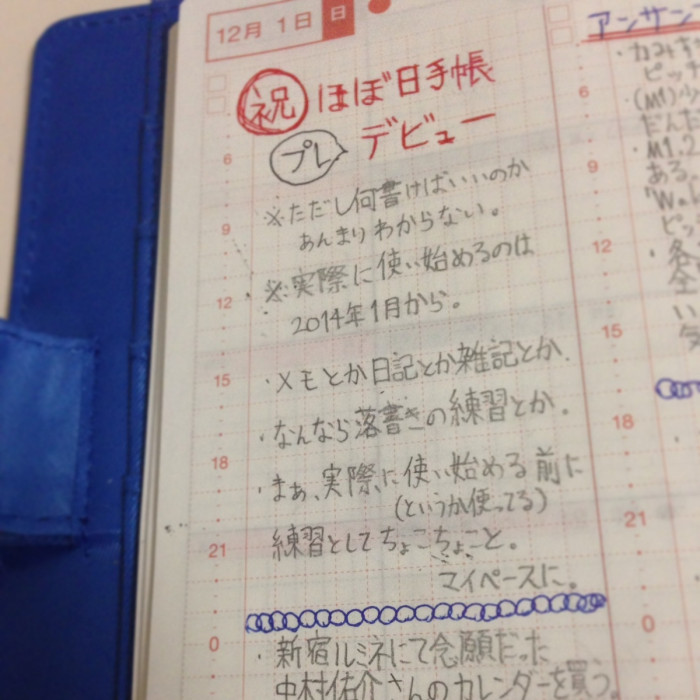 12月 1日 日
祝 ほぼ日手帳
プレ デビュー
※ただし何書けばいいのか
あんまりわからない。
※実際に使い始めるのは
2014年1月から。
・メモとか日記とか雑記とか、
・なんなら落書きの練習とか。
・まぁ、実際に使い始める前に
(というか使ってる)
練習としてちょこちょこと。
マイペースに。
・新宿ルミネにて念願だった
中村佑介さんのカレンダーを買う
6
9
12
15
18
21
0
アンサン
・カムキ
ピッチ
・(M1)少
だんだ
・M1.2
ある。
ピッ
・各
全
い
6
9
12
15
18
21
0